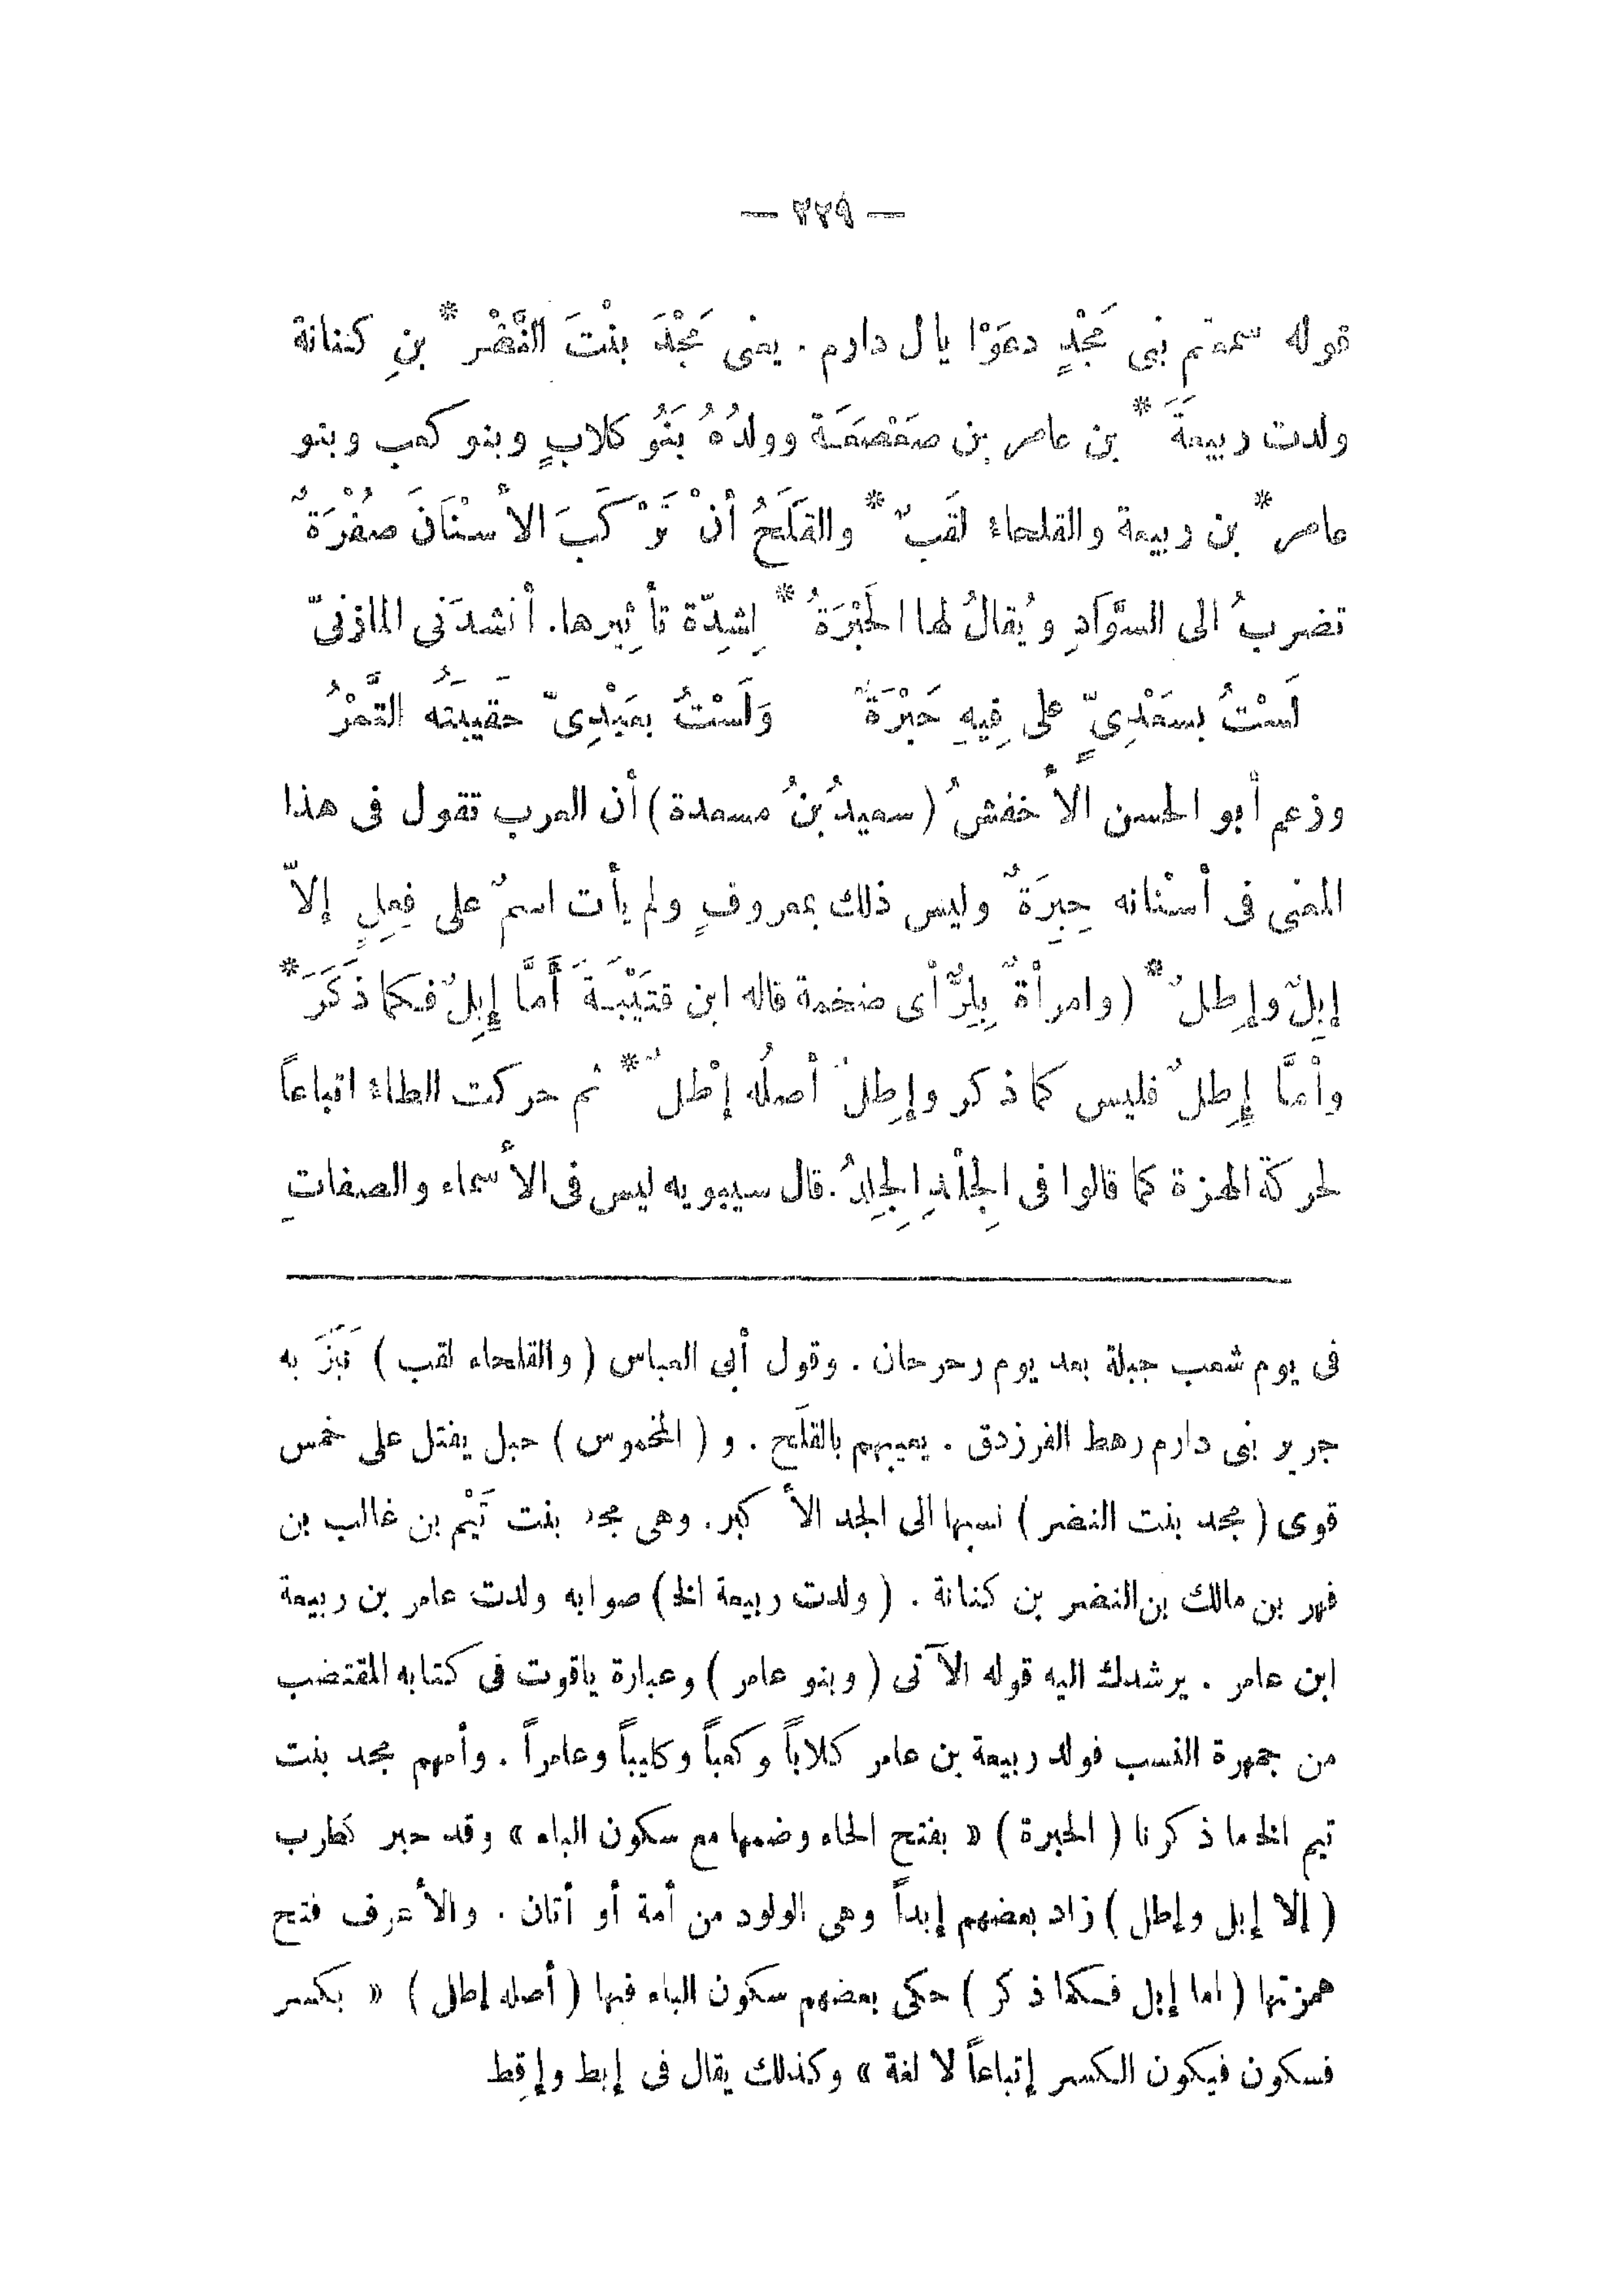 — ٢٢٩ —
قوله سمعتم بنى مَجْدٍ دعَوْا يال دارم . يعنى مَجْدَ بنْتَ النَّضْر * بنِ كنانة
ولدت ربيعةَ * بن عامر بن صَعْصَعَة وولدُهُ بَنُو كلابٍ وبنو كعب وبنو
عامر * بن ربيعة والقلحاء لقَبٌ * والقَلَحُ أنْ تَرْكَبَ الأسْنَانَ صُفْرَةٌ
تضربُ الى السَّوَادِ ويُقالُ لها الحَبْرَةُ * لِشِدّة تأثِيرها. أنشدَنى المازنىّ
لَسْتُ بسَعْدِىٍّ على فِيهِ حَبْرَةٌ وَلَسْتُ بعَبْدِىّ حَقيبَتُه التَّمْرُ
وزعم أبو الحسن الأخفشُ (سعيدُ بنُ مسعدة) أن العرب تقول فى هذا
المعنى فى أسْنانه حِبِرَةٌ وليس ذلك بمعروفٍ ولم يأت اسمٌ على فِعِلٍ إلاّ
إبِلٌ وإطِلٌ * (وامرأةٌ بِلِزٌ أى ضخمة قاله ابن قتَيْبَةَ أَمَّا إِبِلٌ فكما ذَكَرَ *
وأمَّا إِطِلٌ فليس كما ذكر وإطِلٌ أصلُه إطْلٌ * ثم حركت الطاء اتباعاً
لحركة الهمزة كما قالوا فى الجِلْدِ الجِلِدُ. قال سيبويه ليس فى الأسماء والصفاتِ
فى يوم شعب جبلة بعد يوم رحرحان . وقول أبى العباس ( والقلحاء لقب ) نَبَزَ به
جرير بنى دارم رهط الفرزدق . يعيبهم بالقلَح . و ( المخموس ) حبل يفتل على خمس
قوى ( مجد بنت النضر ) نسبها الى الجد الأكبر. وهى مجد بنت تَيْم بن غالب بن
فهر بن مالك بن النضر بن كنانة . ( ولدت ربيعة الخ ) صوابه ولدت عامر بن ربيعة
ابن عامر . يرشدك اليه قوله الآتى ( وبنو عامر ) وعبارة ياقوت فى كتابه المقتضب
من جمهرة النسب فولد ربيعة بن عامر كلاباً وكعباً وكليباً وعامراً . وأمهم مجد بنت
تيم الخ ما ذكرنا ( الحبرة ) « بفتح الحاء وضمها مع سكون الباء » وقد حبر كطرب
( إلا إبل وإطل ) زاد بعضهم إبداً وهى الولود من أمة أو أتان . والأعرف فتح
همزتها ( اما إبل فكما ذكر ) حكى بعضهم سكون الباء فيها ( أصله إطل ) « بكسر
فسكون فيكون الكسر إتباعاً لا لغة » وكذلك يقال فى إبط وإقِط